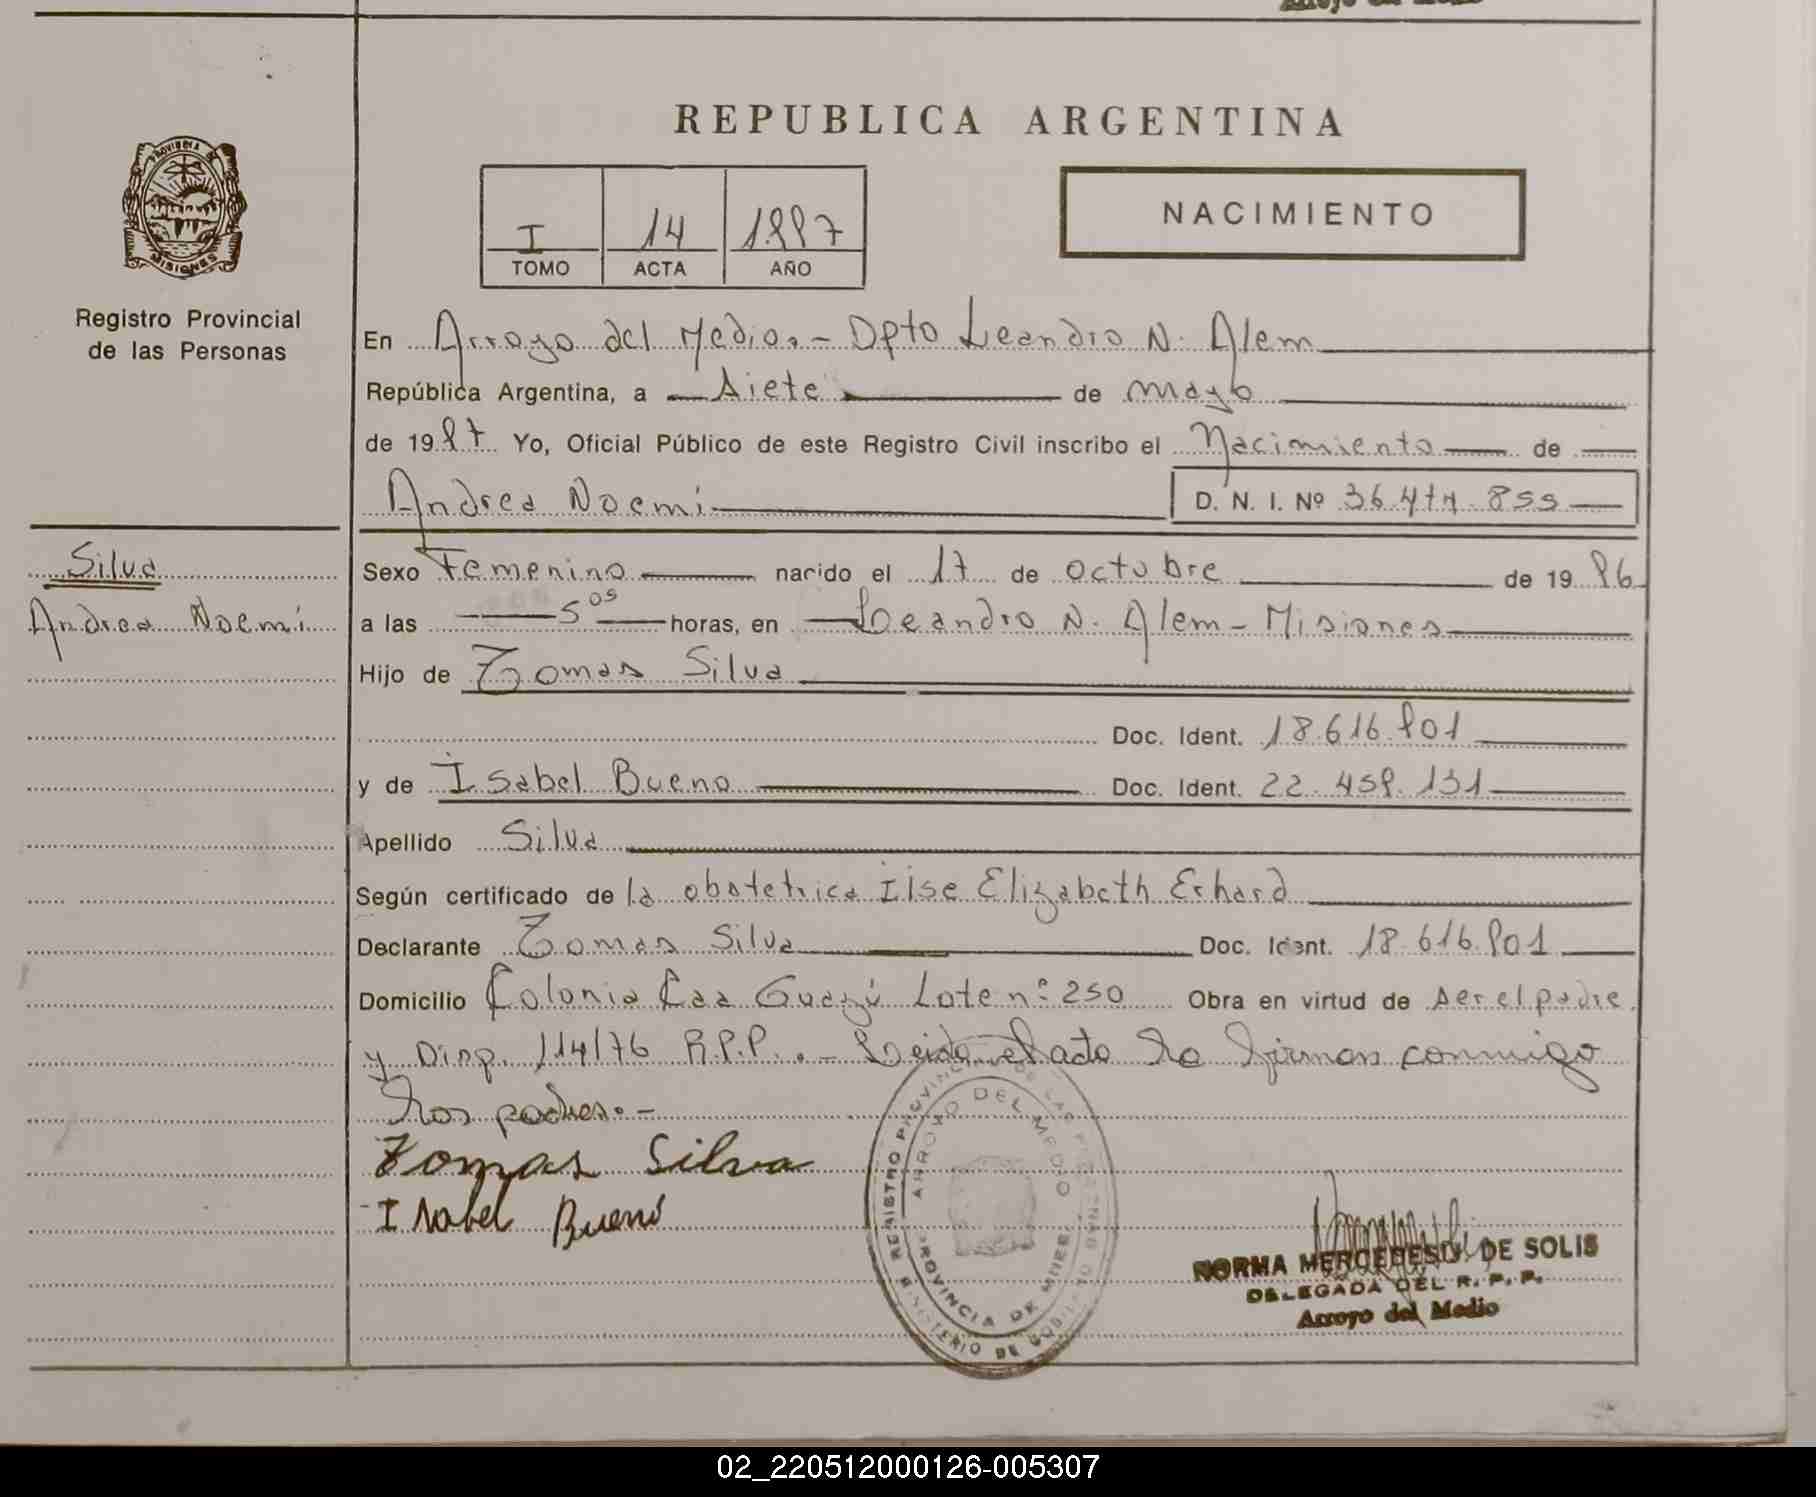 Arroyo del Medio
REPUBLICA ARGENTINA
PROVINCIA DE
MISIONES
Registro Provincial
de las Personas
I 14 1987
TOMO ACTA AÑO
NACIMIENTO
En Arroyo del Medio.- Dpto Leandro N. Alem
República Argentina, a Siete de mayo
de 1987 Yo, Oficial Público de este Registro Civil inscribo el Nacimiento de
Andrea Noemi D. N. I. Nº 36.474.855
Silva
Andrea Noemi
Sexo Femenino nacido el 17 de octubre de 1986
a las 5 05 horas, en Leandro N. Alem - Misiones
Hijo de Tomas Silva
Doc. Ident. 18.616.801
y de Isabel Bueno Doc. Ident. 22.458.131
Apellido Silva
Según certificado de la obstetrica Ilse Elizabeth Erhard
Declarante Tomas Silva Doc. Ident. 18.616.801
Domicilio Colonia Caa Guazú Lote nº 250 Obra en virtud de ser el padre
y Disp. 114/76 R.P.P. .- Leida el acta la firman conmigo
los padres.-
Tomas Silva
Isabel Bueno
REGISTRO PROVINCIAL DE LAS PERSONAS
ARROYO DEL MEDIO
PROVINCIA DE MISIONES
MINISTERIO DE GOBIERNO
NORMA MERCEDES DE SOLIS
DELEGADA DEL R. P. P.
Arroyo del Medio
02_220512000126-005307